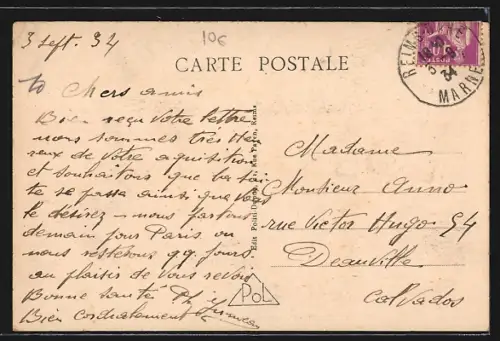 3 Sept. 34
10€
CARTE POSTALE
REIMS
MARNE
34
to Chers amis
Bien reçu Votre lettre
nous sommes très heu
reux de Votre aquisition
et souhaitons que ba tai
te se passa ainsi que Vous
le désirez – nous partons
demain pour Paris ou
nous resterons qq. jours
au plaisir de Vous revoir
Bonne Santé
Bien cordialement
Madame
Monsieur Anno
rue Victor Hugo 54
Deauville
Calvados
PoL